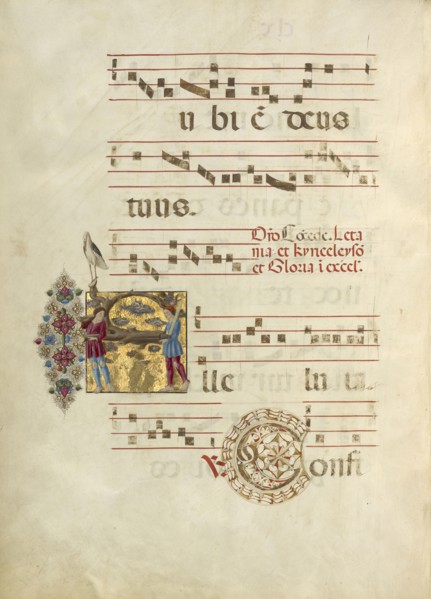 u bi ẽ deus
tuus.
Or̃o Cõcede. Leta
nia et kyrieeleysõ
et Gloria i excel.
A lle lu ia.
℣. Confi